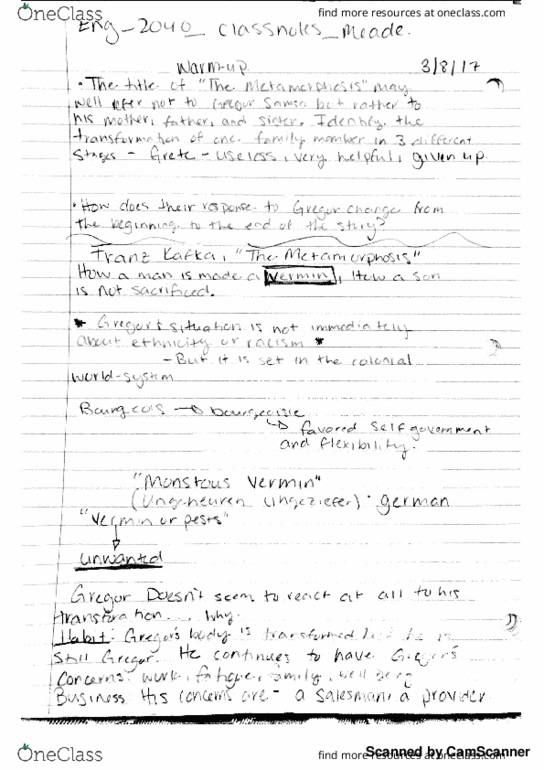 OneClass
find more resources at oneclass.com
find more resources at oneclass.com
Eng_2040_ classnotes_Meade.
Warm-up
3/8/17
• The title of "The Metamorphosis" may
well refer not to Gregor Samsa but rather to
his mother, father, and sister. Identify the
transformation of one family member in 3 different
stages - Grete - useless, very helpful, given up.
• How does their response to Gregor change from
the beginning to the end of the story?
Franz Kafka, "The Metamorphosis"
How a man is made a vermin, How a son
is not sacrificed.
* Gregor's situation is not immediately
about ethnicity or racism *
- But it is set in the colonial
world-system
Bourgeois → bourgeoisie
↳ favored self government
and flexibility.
"Monstous Vermin"
(Ungeheuren Ungeziefer) • german
"vermin or pests"
↓
unwanted
Gregor Doesn't seem to react at all to his
transforation... Why.
Habit: Gregor's body is transformed he is
Still Gregor. He continues to have Gregor's
Concerns: work, fatigue, family, well being
Business His concerns are - a salesman, a provider
OneClass
find more resources at oneclass.com
Scanned by CamScanner